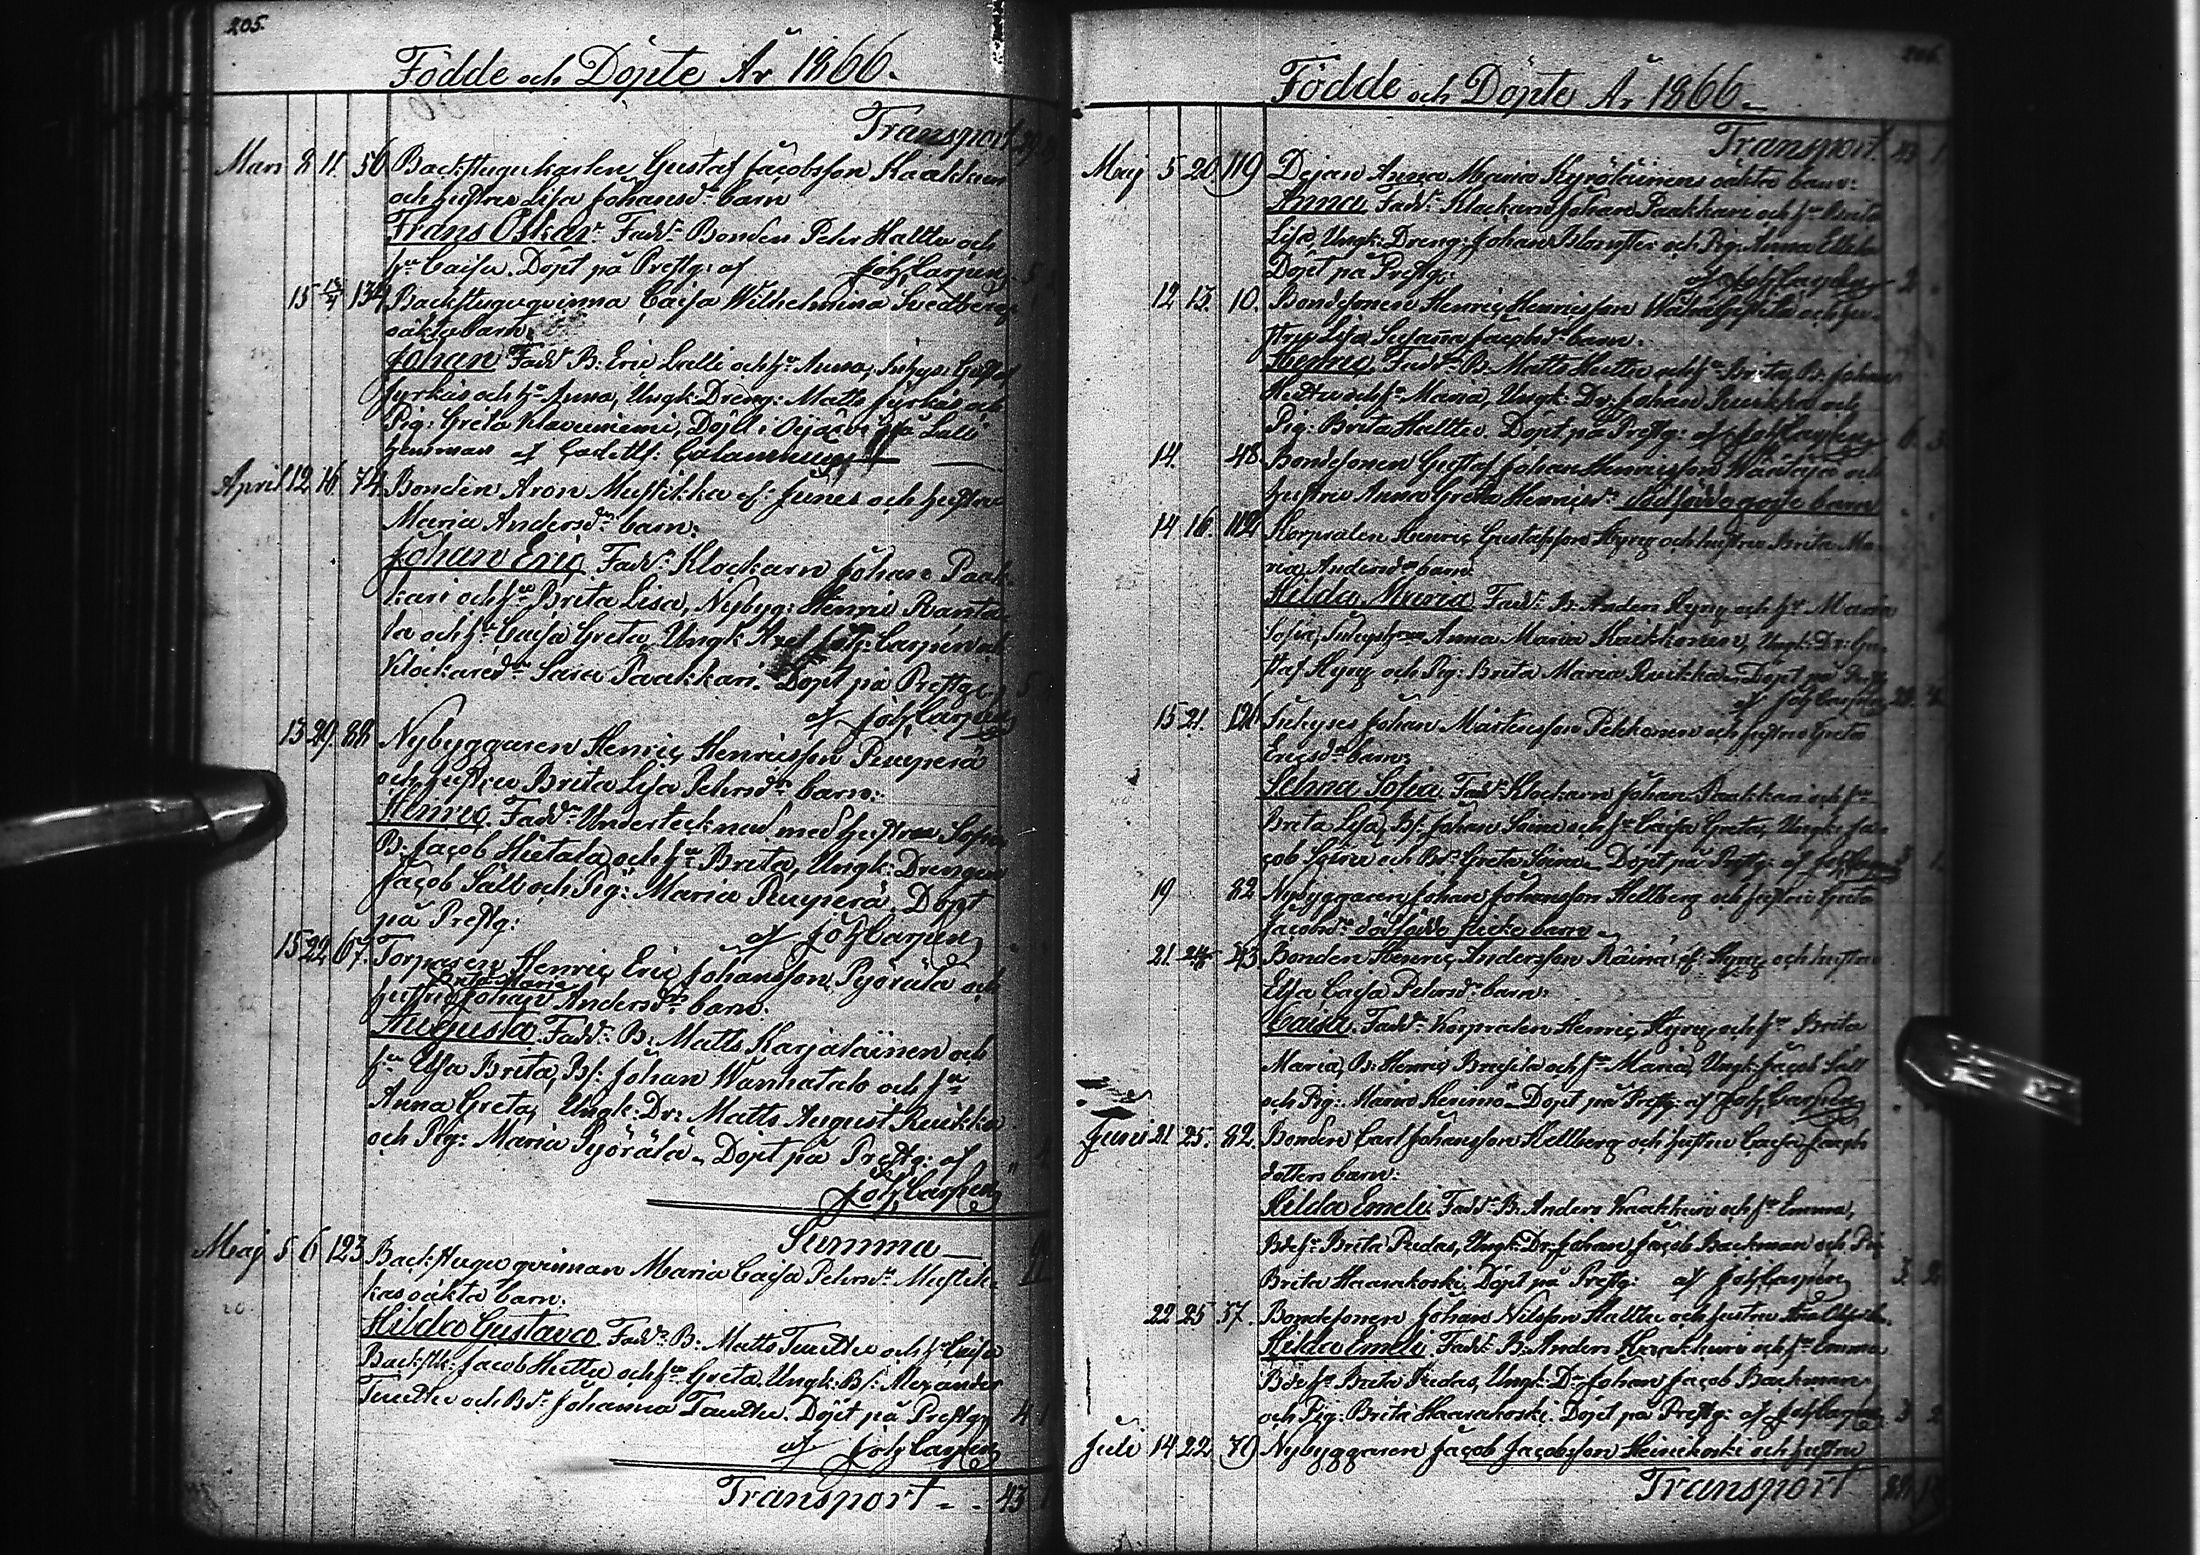 205.
Födde och Döpte År 1866.
Transport
Mars 8 11 56 Backstugukarlen Gustaf Jacobsson Kaakkuri
och hustru Lisa Johansdr barn
Frans Oskar. Fadd: Bonden Petter Halttu och
hu Caisa. Döpt på Prestg: af Joh: Carpén
15 134 Backstuguqvinna Caisa Wilhelmina Svedberg
oäkta barn:
Johan Fadd: B: Eric Lalli och hu Anna, Inhys:
Jyrkäs och hu Anna, Ungk: Dreng: Matts Jyrkäs och
Pig: Greta Döpt i på Lalli
hemman af
April 12 16 74 Bonden Aron Mustikka ef: Junes och hustru
Maria Andersdr barn:
Johan Eric Fadd: Klockarn Johan Paak-
kari och hu Brita Lisa, Nybyg: Henric Ranta-
la och hu Caisa Greta, Ungk: Axel Joh: Carpén och
Klockaredr Sara Paakkari. Döpt på Prestg: 5
af Joh: Carpén
13 29 88 Nybyggaren Henric Henricsson Ruuperä
och hustru Brita Lisa Pehrsdr barn:
Henric. Fadd: Undertecknad med hustru Sofia
B: Jacob Hietala och hu Brita, Ungk: Drengen
Jacob Säll och Pig: Maria Ruuperä. Döpt
på Prestg: af Joh: Carpén
15 22 67. Torparen Henric Eric Johansson Pyörälä och
Brita Maria
hustru Johan Andersdr barn:
Augusta. Fadd: B: Matts Karjalainen och
hu Elsa Brita, Bs: Johan Wanhatalo och hu
Anna Greta, Ungk: Dr: Matts August Ruikka
och Pig: Maria Pyörälä. Döpt på Prestg: af
Joh: Carpén
Summa
Maj 5 6 123 Backstuguqvinnan Maria Caisa Pehrsdr Mustik-
kas oäkta barn.
Hilda Gustava Fadd: B: Matts Tuuttu och hu Caisa
Backstk: Jacob Huttu och hu Greta, Ungk: Bs: Alexander
Tuuttu och Bdr Johanna Tuuttu. Döpt på Prestg: 4
af Joh: Carpén
Transport 43
206.
Födde och Döpte År 1866.
Transport 43
Maj 5 20 119 Dejan Anna Maria Kyröläinens oäkta barn:
Anna Fadd: Klockarn Johan Paakkari och hu Brita
Lisa, Ungk: Dreng: Johan och Pig: Anna
Döpt på Prestg: af Joh: Carpén 2
12 13. 10. Bondesonen Henric Henricsson och hu-
stru Lisa Susanna Jacobsdr barn.
Henric Fadd: B: Matts Huttu och hu Brita, B: Johan
Huttu och hu Maria, Ungk: Dr: Johan Ruikka och
Pig: Brita Halttu. Döpt på Prestg: af Joh: Carpén 6
14. 48 Bondesonen Gustaf Johan Henricsson och
hustru Anna Greta Henricsdr dödfödo gosse barn
14 16. 112 Korpralen Henric Gustafsson Hyry och hustru Brita Ma-
ria Andersdr barn:
Hilda Maria Fadd: B: Anders Hyry och hu Maria
Sofia, Anna Maria Kaikkonen, Ungk: Dr: Gu-
staf Hyry och Pig: Brita Maria Ruikka. Döpt på Prestg:
af Joh: Carpén
15 21. 121 Inhyses Johan Mårtensson Pekkonen och hustru Greta
Ericsdr barn:
Selma Sofia Fadd: Klockarn Johan Paakkari och hu
Brita Lisa, Bs: Johan Soini och hu Caisa Greta, Ungk: Ja-
cob Soini och Bdr: Greta Soini. Döpt på Prestg: af Joh: Carpén 3
19 82 Nybyggaren Johan Johansson Hellberg och hustru Greta
Jacobsdr dödfödda flicke barn
21 43 Bonden Henric Andersson Räinä ef: Hyry och hustru
Elsa Caisa Pehrsdr barn:
Caisa. Fadd: Korpralen Henric Hyry och hu Brita
Maria, B: Henric och hu Maria, Ungk: Jacob Säll
och Pig: Maria Döpt på Prestg: af Joh: Carpén
Juni 21 25. 82. Bonden Carl Johansson Hellberg och hustru Caisa
dotters barn:
Hilda Emeli. Fadd: B: Anders Kaakkuri och hu Emma,
Brita Pudas, Ungk: Dr: Johan Jacob Backman och Pig:
Brita Haarakoski. Döpt på Prestg: af Joh: Carpén 3 2
22 25 57. Bondesonen Johan Nilsson Halttu och hustru
Hilda Emeli Fadd: B: Anders Kaakkuri och hu Emma
Brita Pudas, Ungk: Dr: Johan Jacob Backman
och Pig: Brita Haarakoski. Döpt på Prestg: af Joh: Carpén 3 2
Juli 14 22 79 Nybyggaren Jacob Jacobsson Heinikoski och hustru
Transport